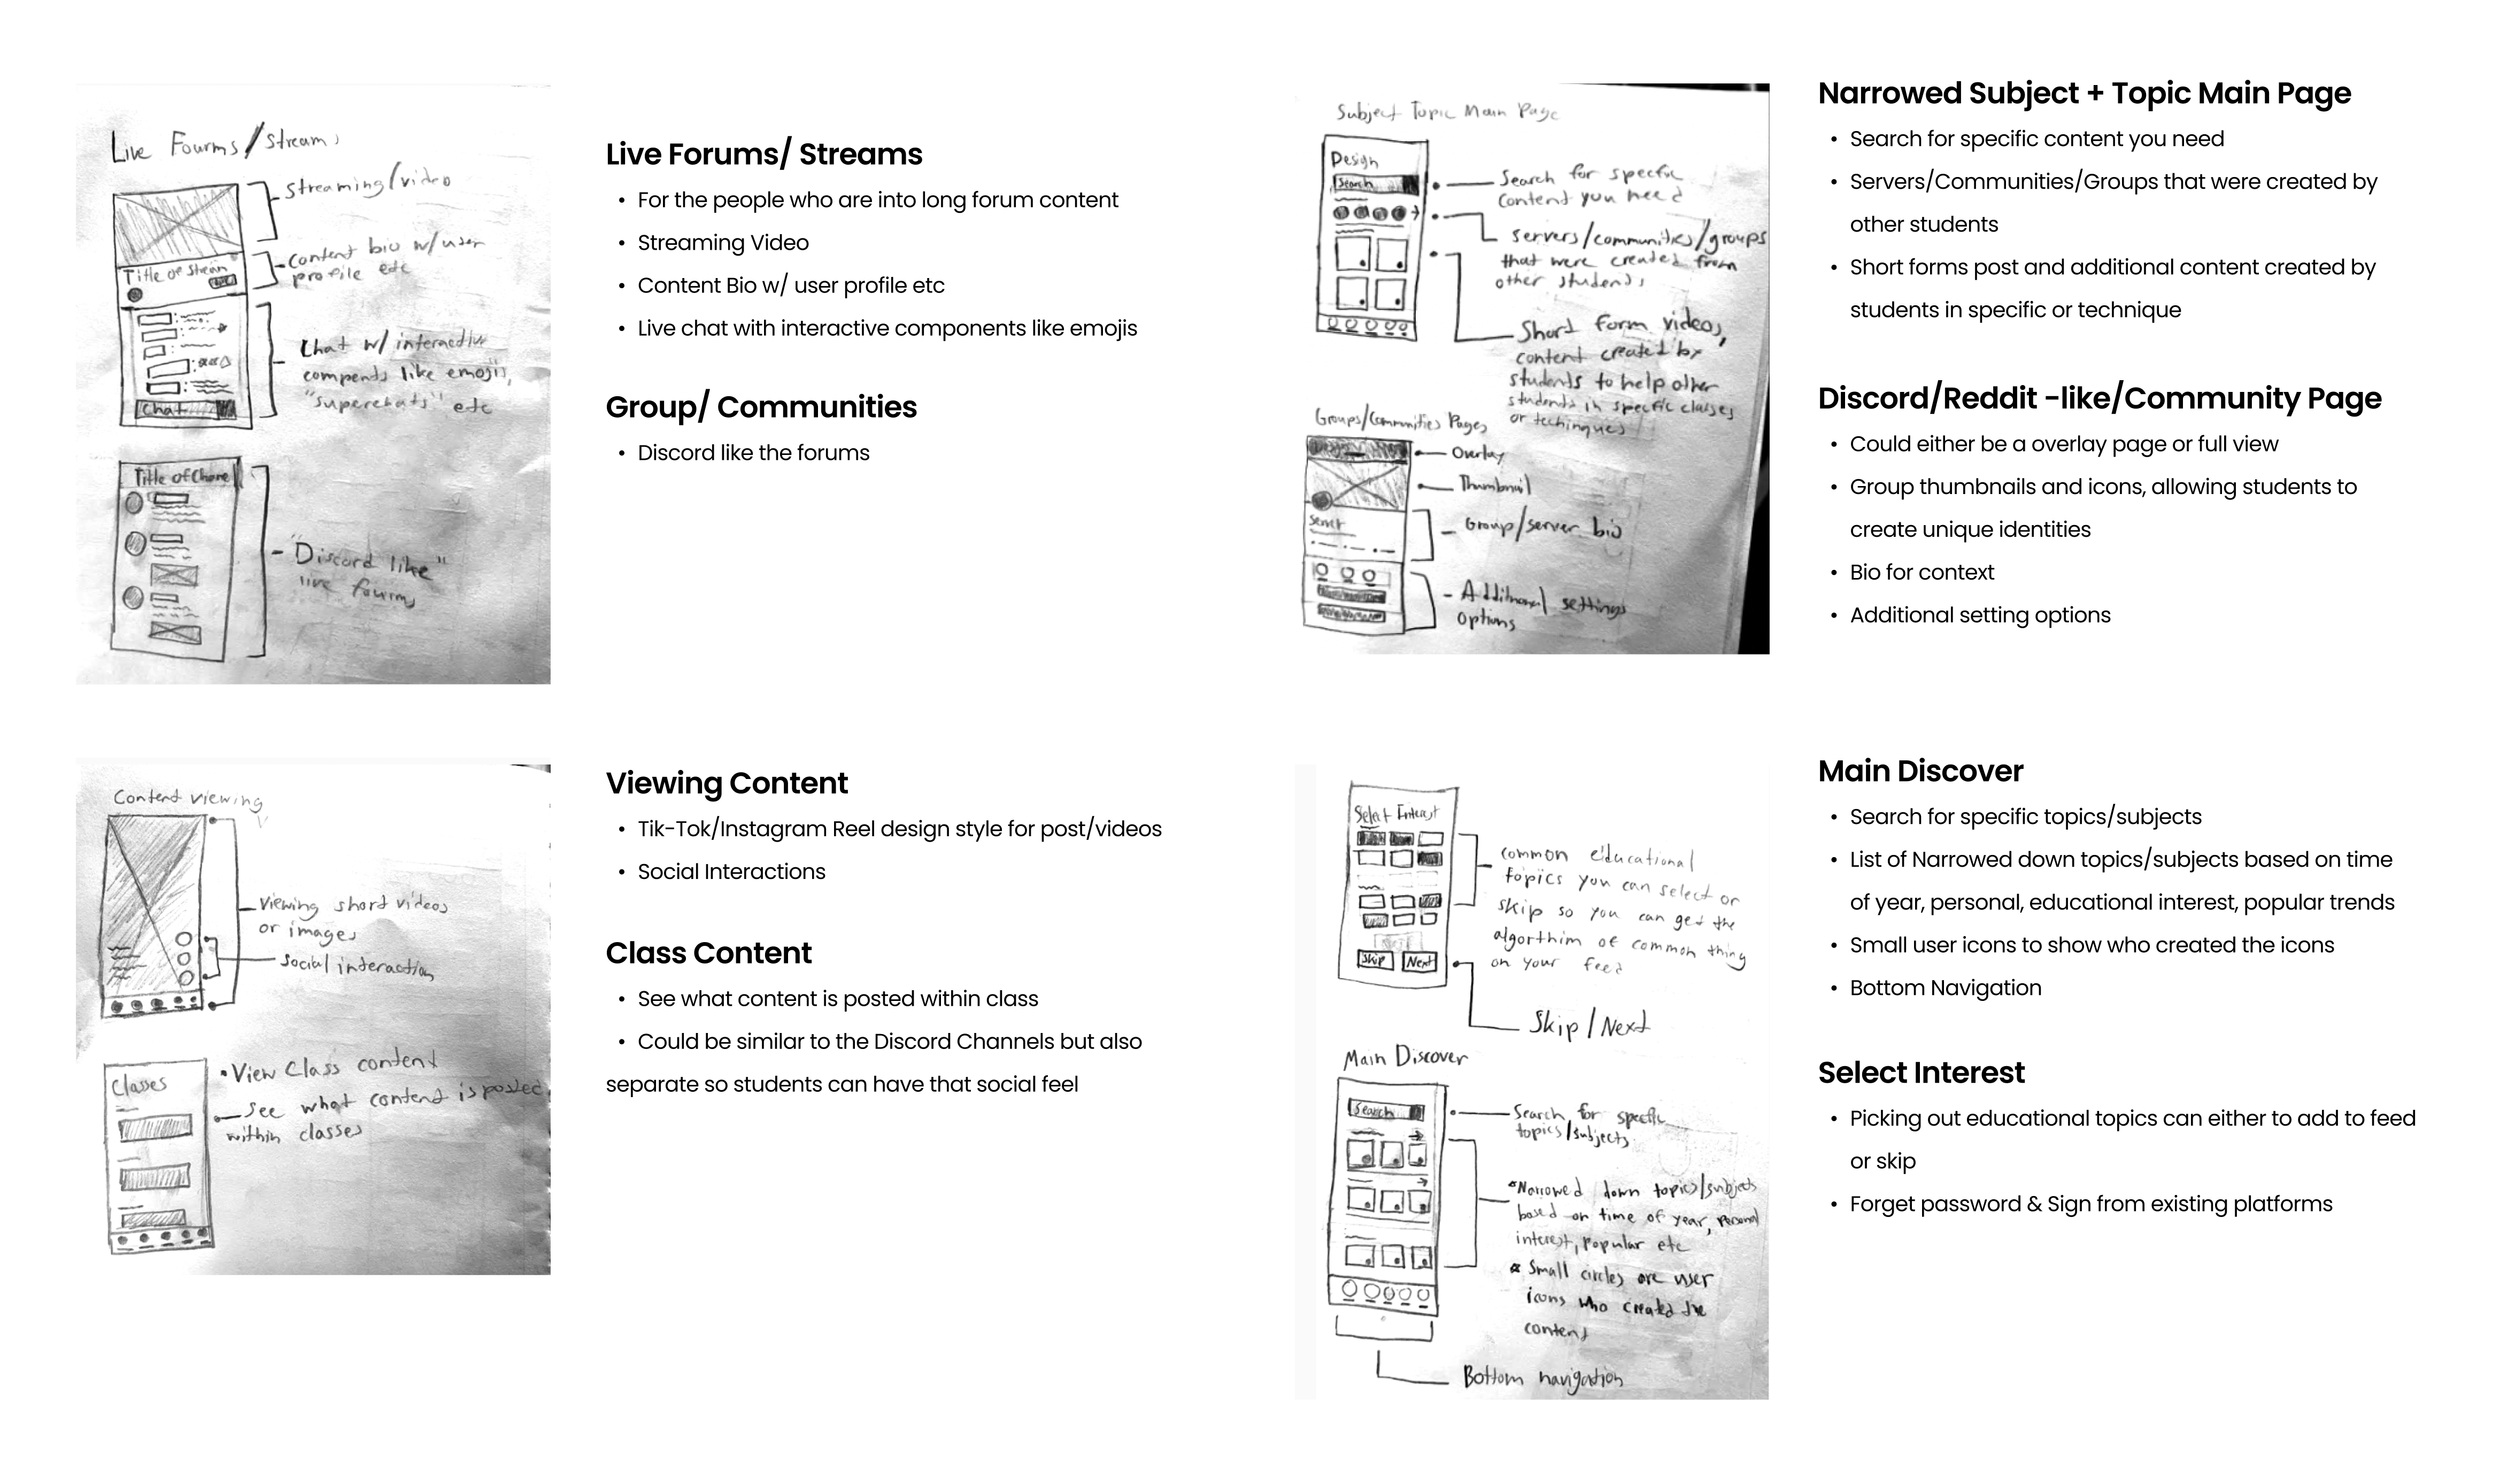 Live Fourms/Streams
streaming/video
Content bio w/user
profile etc
Title of Stream
Chat w/ interactive
compents like emojis,
"superchats" etc
Chat
Title of Chane
"Discord like"
live fourms
Live Forums/ Streams
• For the people who are into long forum content
• Streaming Video
• Content Bio w/ user profile etc
• Live chat with interactive components like emojis
Group/ Communities
• Discord like the forums
Subject Topic Main Page
Design
Search
Search for specfic
content you need
servers/communities/groups
that were created from
other students
Short form videos,
content created by
students to help other
students in specfic classes
or techinques
Groups/Communities Pages
Overlay
Thumbnail
Server
Group/server bio
Additional settings
options
Narrowed Subject + Topic Main Page
• Search for specific content you need
• Servers/Communities/Groups that were created by
other students
• Short forms post and additional content created by
students in specific or technique
Discord/Reddit -like/Community Page
• Could either be a overlay page or full view
• Group thumbnails and icons, allowing students to
create unique identities
• Bio for context
• Additional setting options
Content viewing
Viewing short videos
or images
social interaction
Classes
• View Class content
see what content is posted
within classes
Viewing Content
• Tik-Tok/Instagram Reel design style for post/videos
• Social Interactions
Class Content
• See what content is posted within class
• Could be similar to the Discord Channels but also
separate so students can have that social feel
Select Interest
common educational
topics you can select or
skip so you can get the
algorthim of common thing
on your feed
Skip
Next
Skip/Next
Main Discover
Search
Search for specfic
topics/subjects
Narrowed down topics/subjects
based on time of year, personal
interest, popular etc
Small circles are user
icons who created the
content
Bottom navigation
Main Discover
• Search for specific topics/subjects
• List of Narrowed down topics/subjects based on time
of year, personal, educational interest, popular trends
• Small user icons to show who created the icons
• Bottom Navigation
Select Interest
• Picking out educational topics can either to add to feed
or skip
• Forget password & Sign from existing platforms